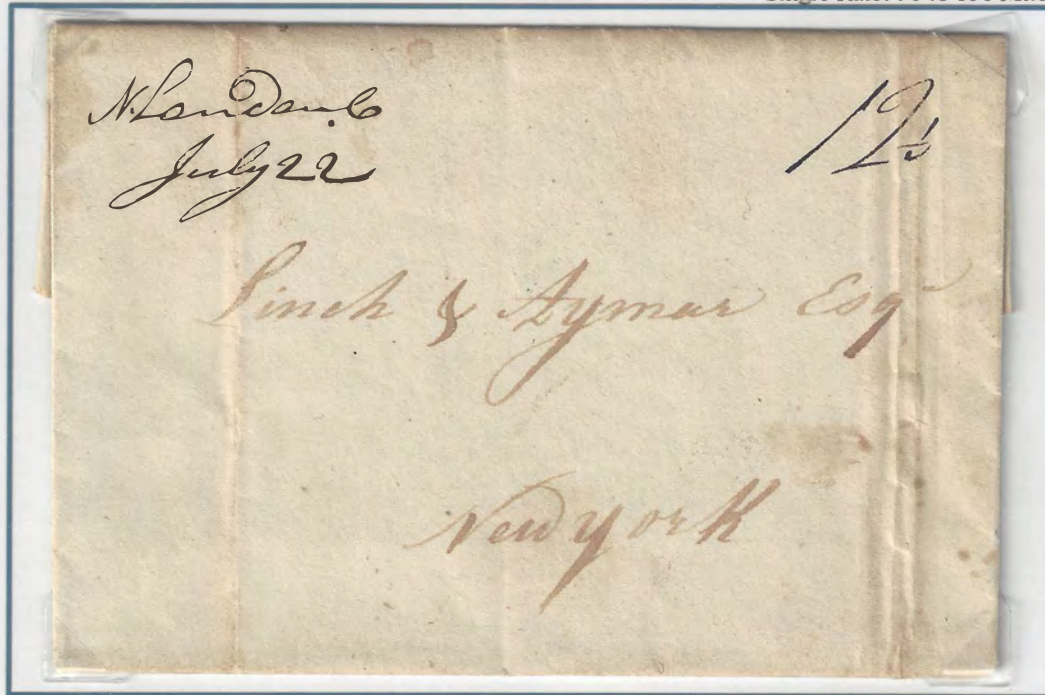 N. London. C
July 22
12½
Linch & Aymar Esqr
New york